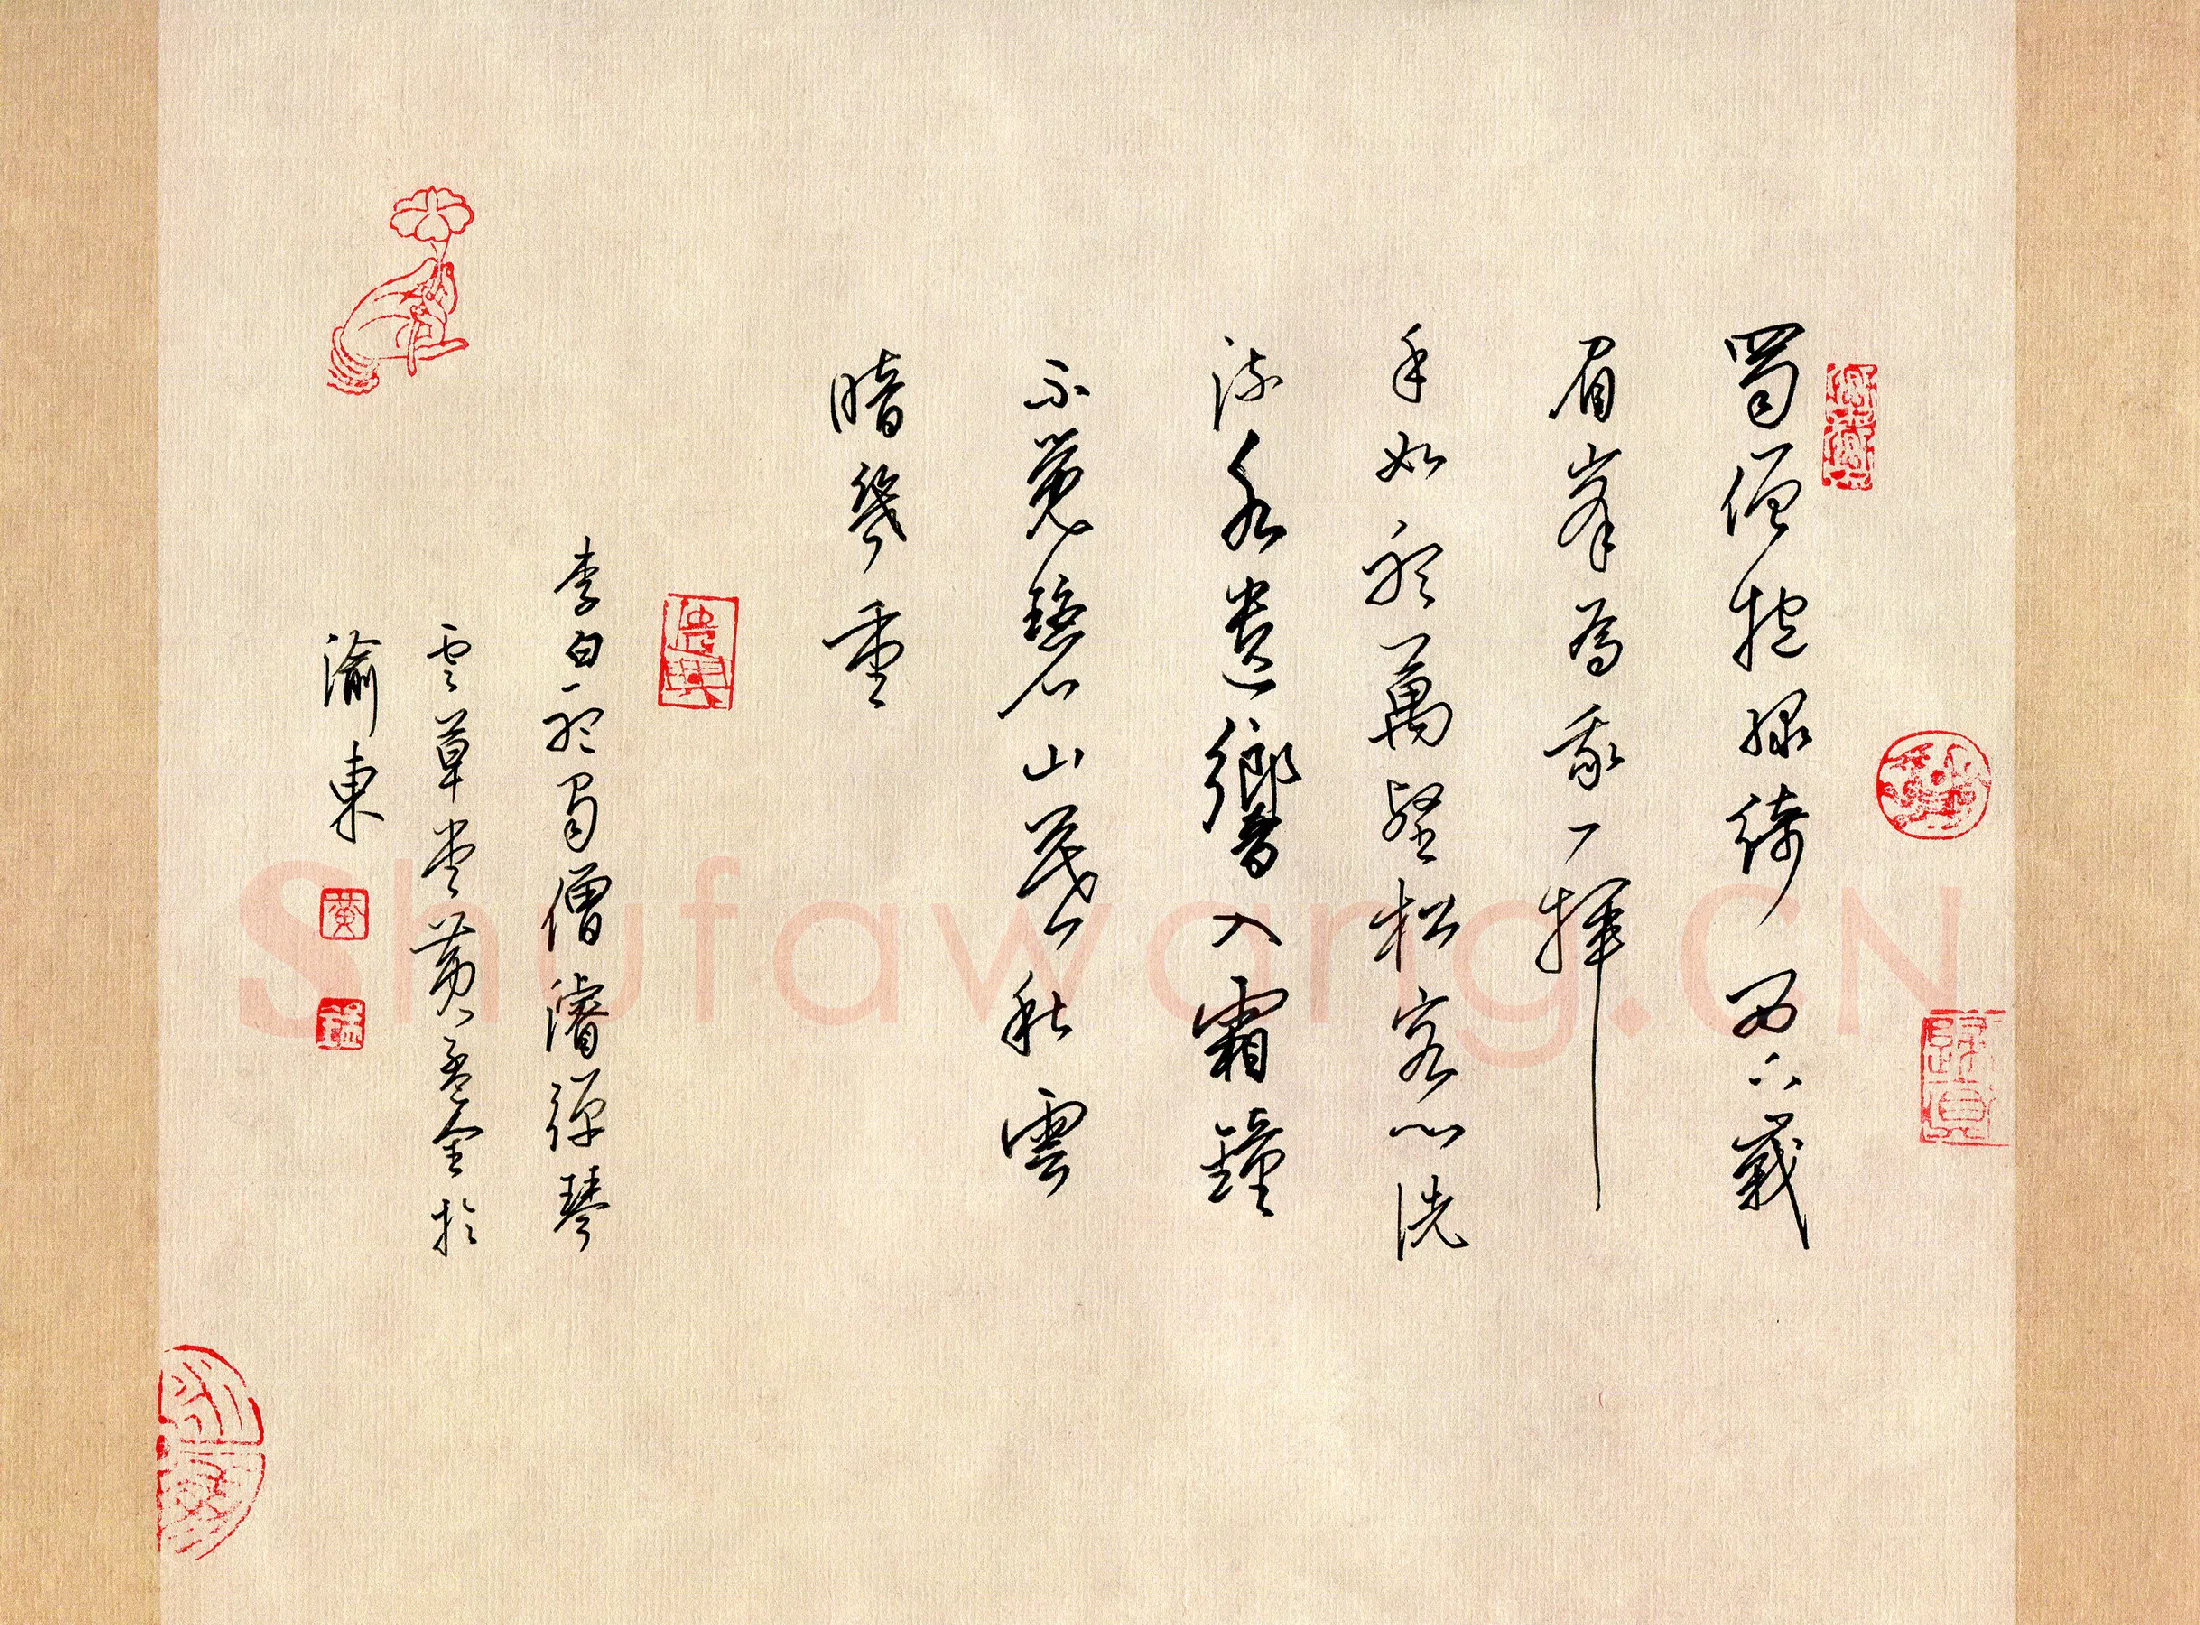 蜀僧抱綠綺西下峩
眉峯為我一揮
手如聽萬壑松客心洗
流水遺響入霜鐘
不覺碧山暮秋雲
暗幾重
李白聽蜀僧濬彈琴
云草堂黃孟金於
渝東
黃
Shufawang.CN